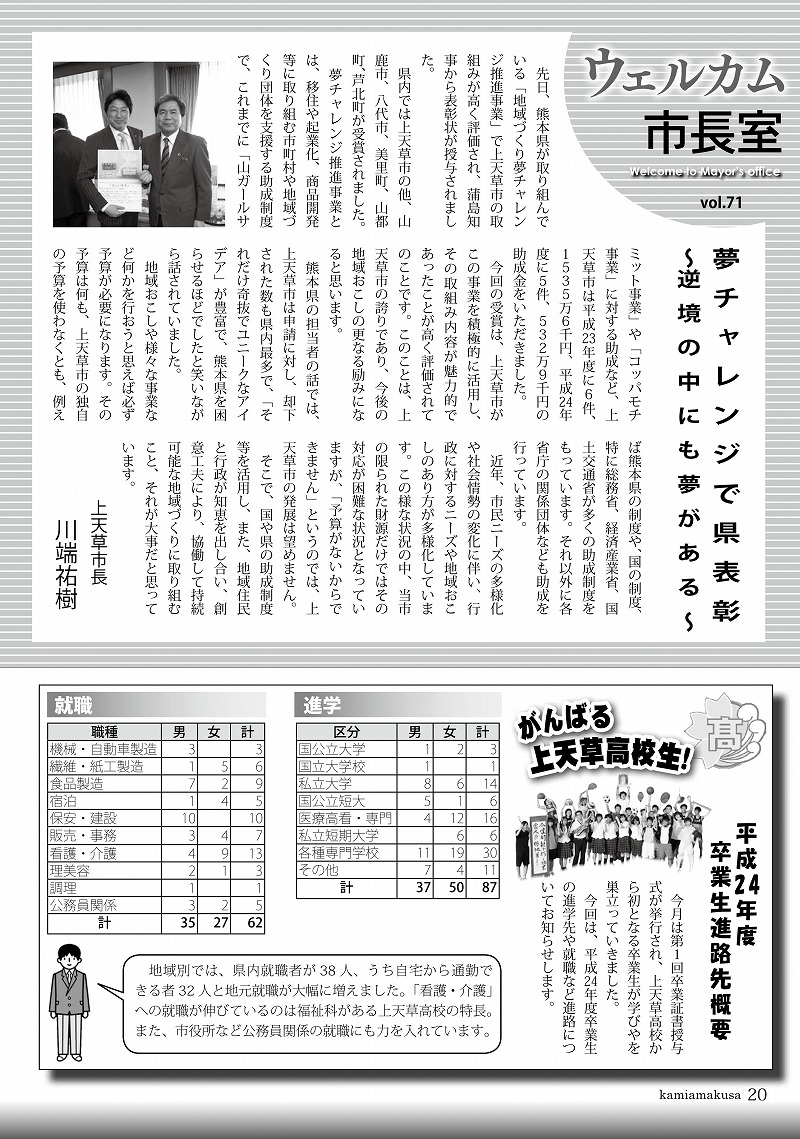 ウェルカム
市長室
Welcome to Mayor's office
vol.71
夢チャレンジで県表彰
～逆境の中にも夢がある～
　先日、熊本県が取り組んで
いる「地域づくり夢チャレン
ジ推進事業」で上天草市の取
組みが高く評価され、蒲島知
事から表彰状が授与されまし
た。
　県内では上天草市の他、山
鹿市、八代市、美里町、山都
町、芦北町が受賞されました。
　夢チャレンジ推進事業と
は、移住や起業化、商品開発
等に取り組む市町村や地域づ
くり団体を支援する助成制度
で、これまでに「山ガールサ
ミット事業」や「コッパモチ
事業」に対する助成など、上
天草市は平成23年度に６件、
１５３５万６千円、平成24年
度に５件、５３２万９千円の
助成金をいただきました。
　今回の受賞は、上天草市が
この事業を積極的に活用し、
その取組み内容が魅力的で
あったことが高く評価されて
のことです。このことは、上
天草市の誇りであり、今後の
地域おこしの更なる励みにな
ると思います。
　熊本県の担当者の話では、
上天草市は申請に対し、却下
された数も県内最多で、「そ
れだけ奇抜でユニークなアイ
デア」が豊富で、熊本県を困
らせるほどでしたと笑いなが
ら話されていました。
　地域おこしや様々な事業な
ど何かを行おうと思えば必ず
予算が必要になります。その
予算は何も、上天草市の独自
の予算を使わなくとも、例え
ば熊本県の制度や、国の制度、
特に総務省、経済産業省、国
土交通省が多くの助成制度を
もっています。それ以外に各
省庁の関係団体なども助成を
行っています。
　近年、市民ニーズの多様化
や社会情勢の変化に伴い、行
政に対するニーズや地域おこ
しのあり方が多様化していま
す。この様な状況の中、当市
の限られた財源だけではその
対応が困難な状況となってい
ますが、「予算がないからで
きません」というのでは、上
天草市の発展は望めません。
　そこで、国や県の助成制度
等を活用し、また、地域住民
と行政が知恵を出し合い、創
意工夫により、協働して持続
可能な地域づくりに取り組む
こと、それが大事だと思って
います。
上天草市長
川端祐樹
がんばる
上天草高校生！
高
平成24年度
卒業生進路先概要
　今月は第１回卒業証書授与
式が挙行され、上天草高校か
ら初となる卒業生が学びやを
巣立っていきました。
　今回は、平成24年度卒業生
の進学先や就職など進路につ
いてお知らせします。
進学
区分 男 女 計
国公立大学 1 2 3
国立大学校 1 1
私立大学 8 6 14
国公立短大 5 1 6
医療高看・専門 4 12 16
私立短期大学 6 6
各種専門学校 11 19 30
その他 7 4 11
計 37 50 87
就職
職種 男 女 計
機械・自動車製造 3 3
繊維・紙工製造 1 5 6
食品製造 7 2 9
宿泊 1 4 5
保安・建設 10 10
販売・事務 3 4 7
看護・介護 4 9 13
理美容 2 1 3
調理 1 1
公務員関係 3 2 5
計 35 27 62
　地域別では、県内就職者が38人、うち自宅から通勤で
きる者32人と地元就職が大幅に増えました。「看護・介護」
への就職が伸びているのは福祉科がある上天草高校の特長。
また、市役所など公務員関係の就職にも力を入れています。
kamiamakusa 20